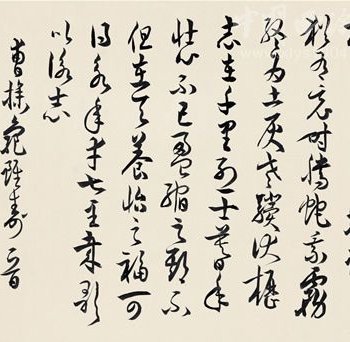 猶有竟時騰蛇乘霧
終為土灰老驥伏櫪
志在千里烈士暮年
壯心不已盈縮之期不
但在天養怡之福可
得永年幸甚至哉歌
以詠志
曹操龜雖壽一首